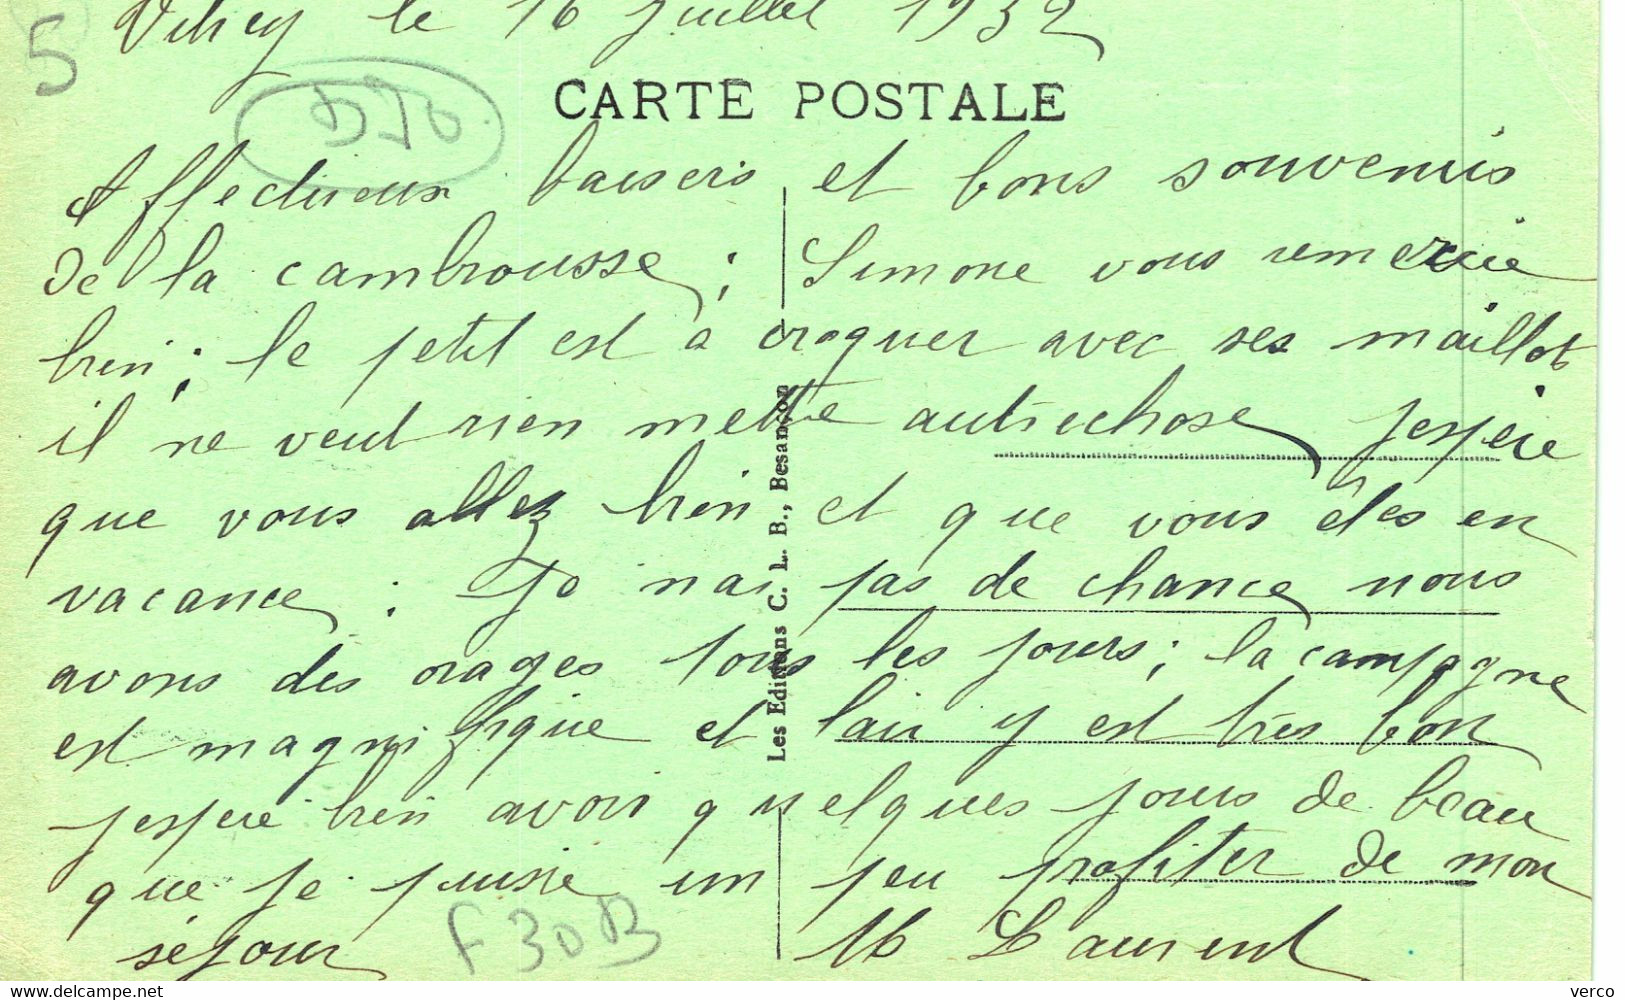 5 Vitrey le 16 juillet 1932
DJO
CARTE POSTALE
Affectueux baisers et bons souvenirs
de la cambrousse ; Simone vous remercie
bien ; le petit est a croquer avec ses maillot
il ne veut rien mettre autrechose jespère
que vous allez bien et que vous êtes en
vacance : Je nai pas de chance nous
avons des orages tous les jours ; la campagne
est magnifique et lair y est très bon
jespere bien avoir quelques jours de beau
que je puisse un peu profiter de mon
séjour M Laurent
F30B
Les Editions C. L. B., Besançon
www.delcampe.net
verco